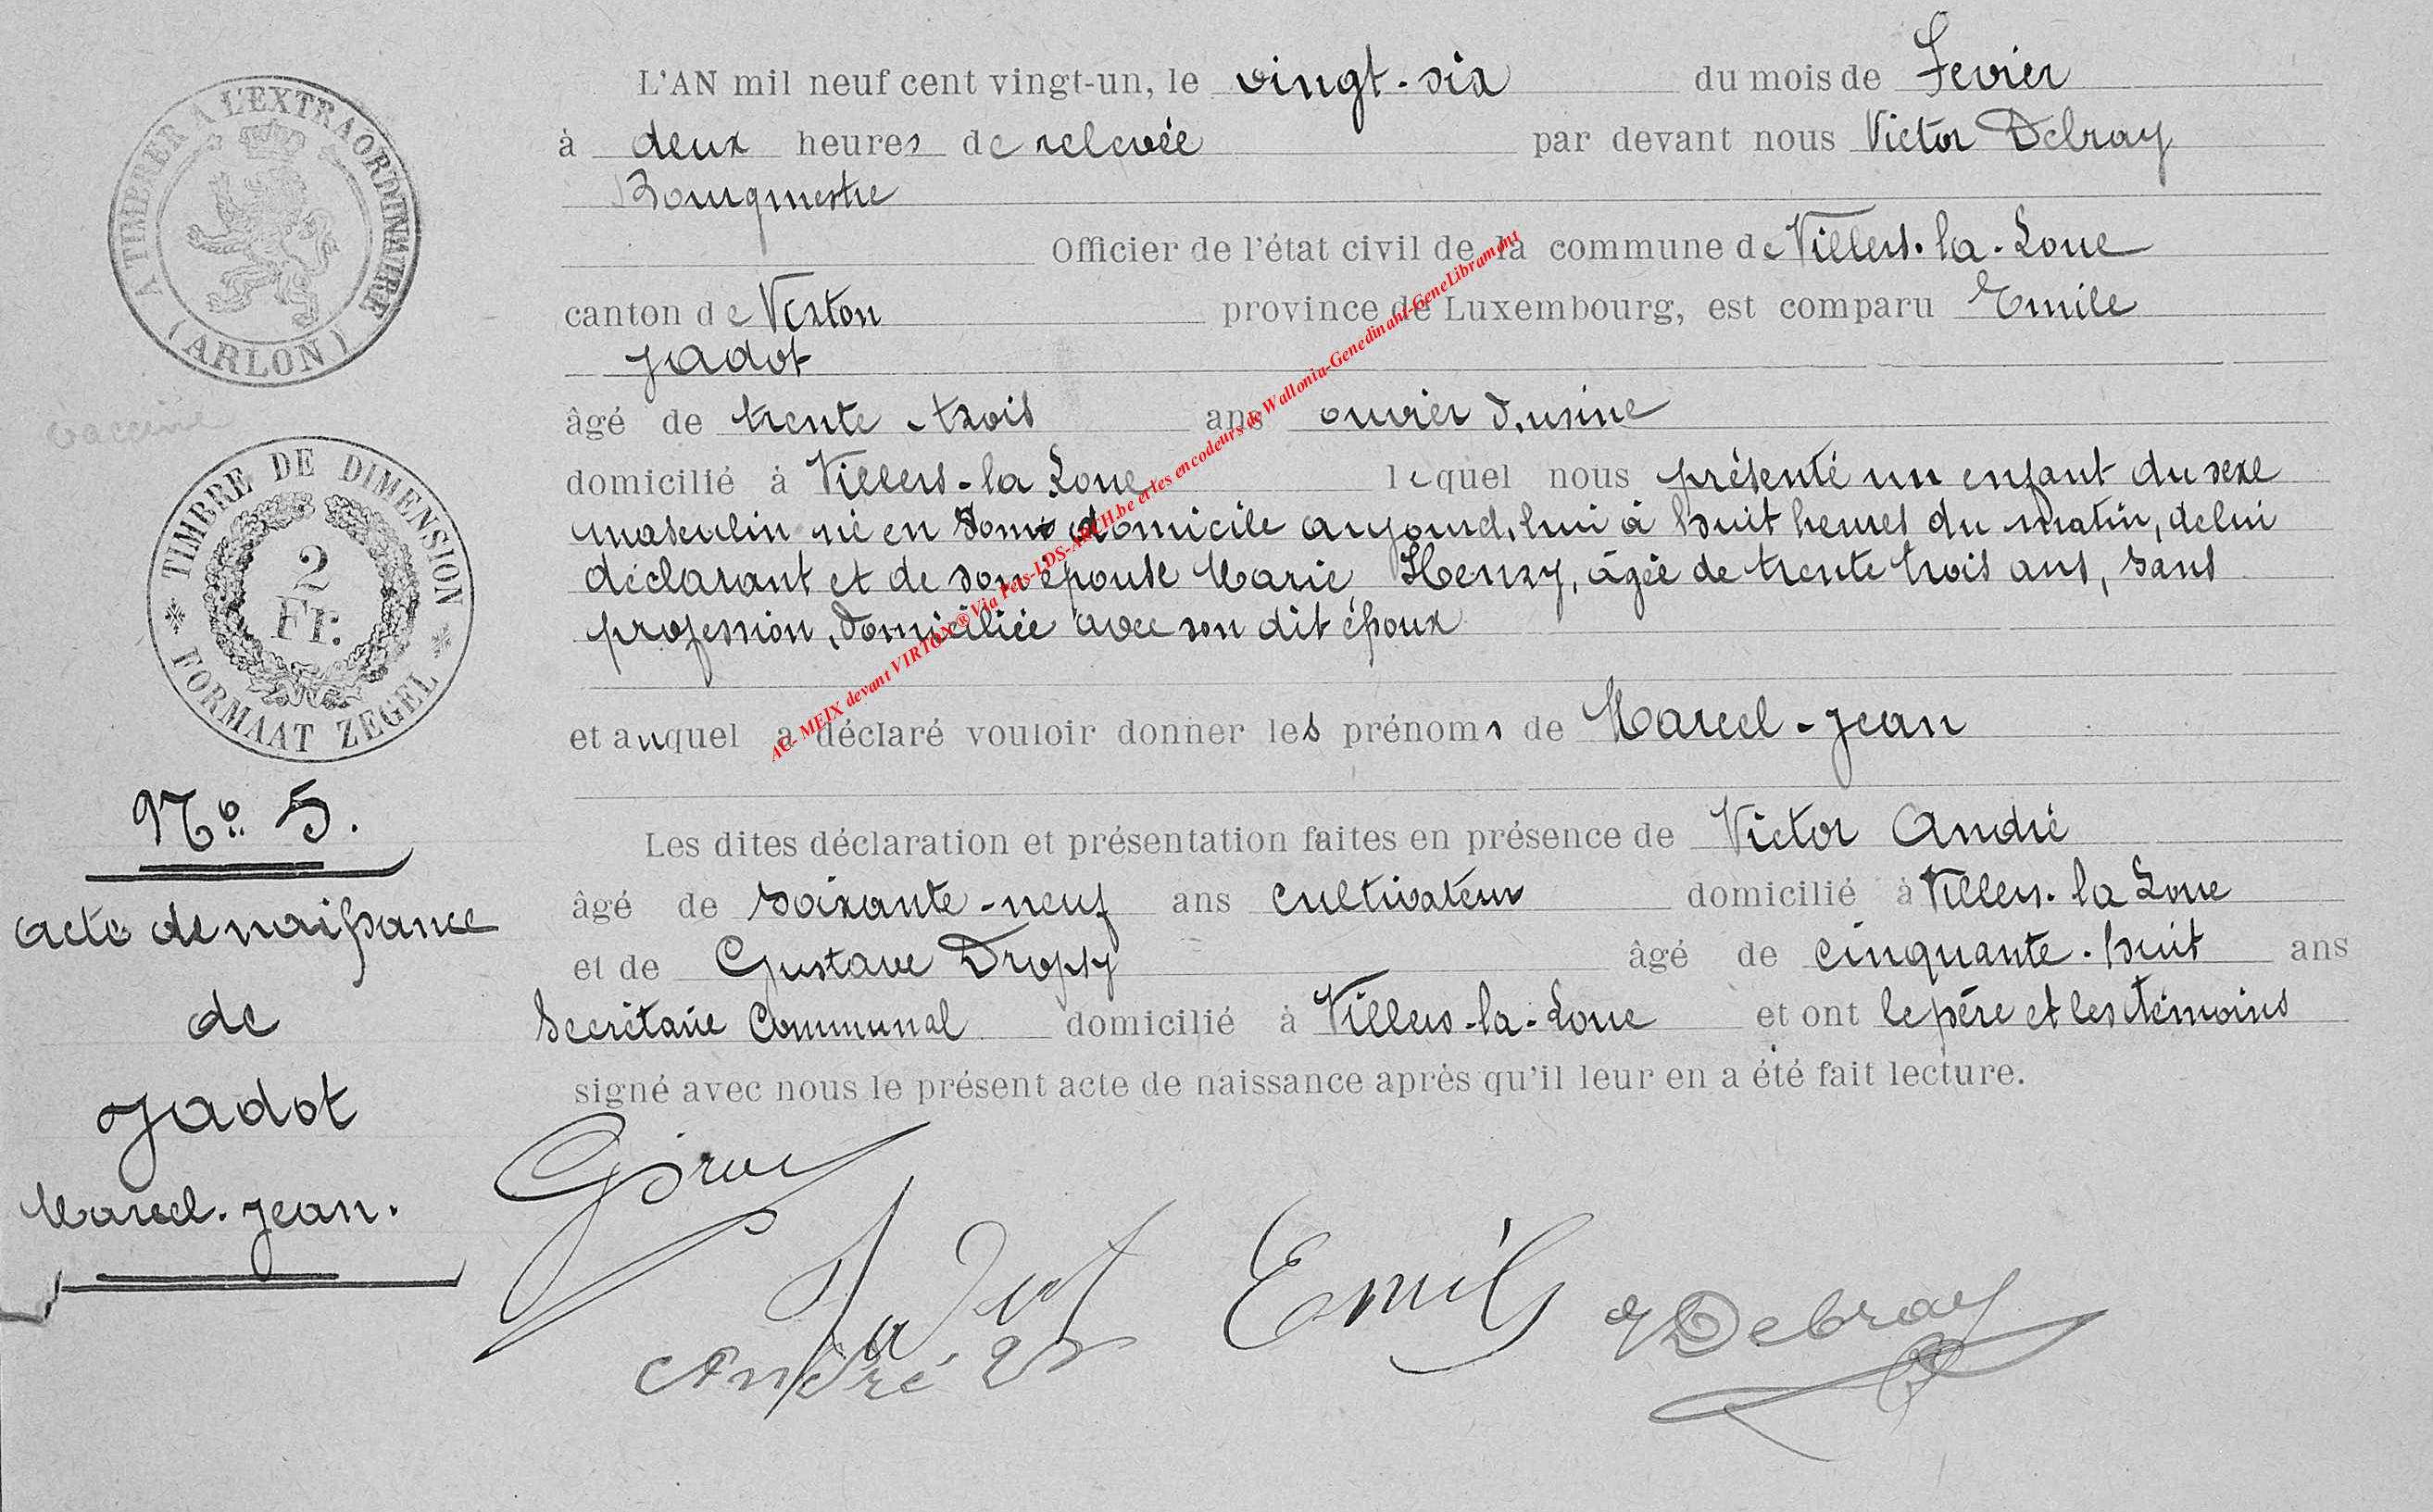 A TIMBRER A L'EXTRAORDINAIRE
(ARLON)
vaccine
TIMBRE DE DIMENSION
2
Fr.
FORMAAT ZEGEL
No 5.
acte de naissance
de
Jadot
Marcel-Jean.
L'AN mil neuf cent vingt-un, le vingt-six du mois de Fevrier
à deux heures de relevée par devant nous Victor Debray
Bourgmestre
Officier de l'état civil de la commune de Villers-la-Loue
canton de Virton province de Luxembourg, est comparu Emile
Jadot
âgé de trente-trois ans ouvrier d'usine
domicilié à Villers-la Loue lequel nous présenté un enfant du sexe
masculin né en son domicile aujourd'hui à huit heures du matin, de lui
déclarant et de son épouse Marie Henry, âgée de trente trois ans, sans
profession, domiciliée avec son dit époux
et auquel a déclaré vouloir donner les prénoms de Marcel-Jean
Les dites déclaration et présentation faites en présence de Victor André
âgé de soixante-neuf ans cultivateur domicilié à Villers-la Loue
et de Gustave Dropsy âgé de cinquante-huit ans
Secrétaire Communal domicilié à Villers-la-Loue et ont le père et les témoins
signé avec nous le présent acte de naissance après qu'il leur en a été fait lecture.
Jadot Emile
André
Debray
AC- MEIX devant VIRTON ® Via Fets-LDS-ARCH.be et les encodeurs de Wallonia-Genedinant-GeneLibramont